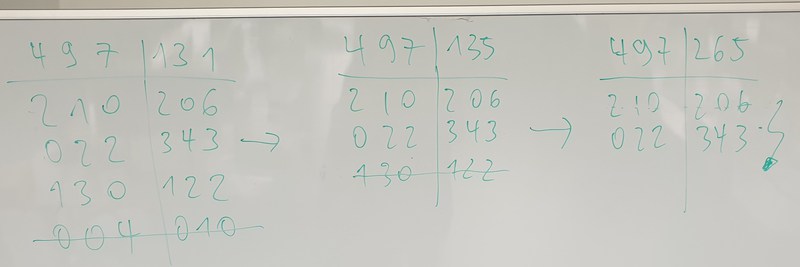 4 9 7 | 1 3 1
2 1 0 | 2 0 6
0 2 2 | 3 4 3 →
1 3 0 | 1 2 2
0 0 4 | 0 1 0
4 9 7 | 1 3 5
2 1 0 | 2 0 6
0 2 2 | 3 4 3 →
1 3 0 | 1 2 2
4 9 7 | 2 6 5
2 1 0 | 2 0 6
0 2 2 | 3 4 3